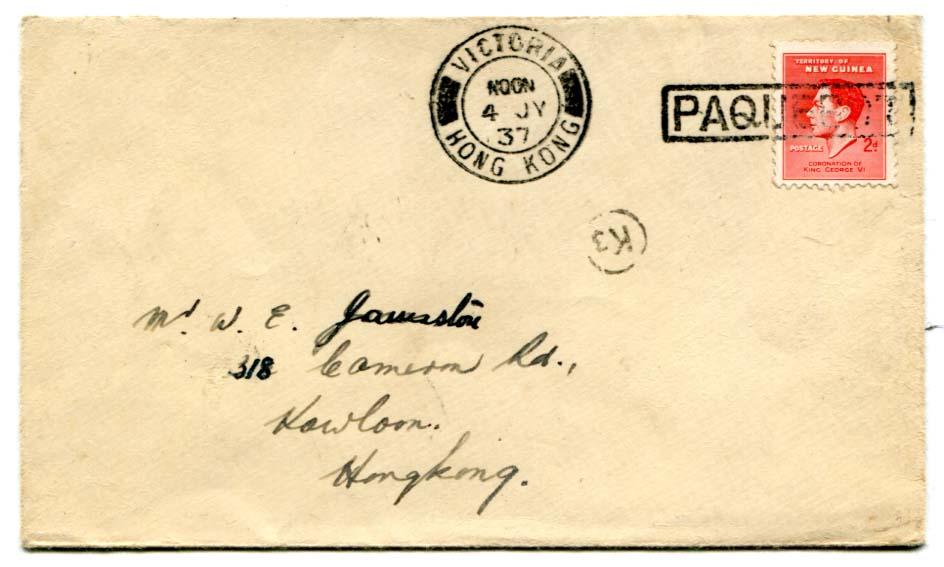 VICTORIA
NOON
4 JY
37
HONG KONG
PAQUEBOT
TERRITORY OF
NEW GUINEA
POSTAGE 2d
CORONATION OF
KING GEORGE VI
K3
Mr. W. E.
318 Cameron Rd.,
Kowloon.
Hongkong.